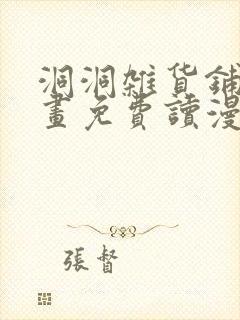 洞洞雜貨鋪
畫免費讀漫
張督